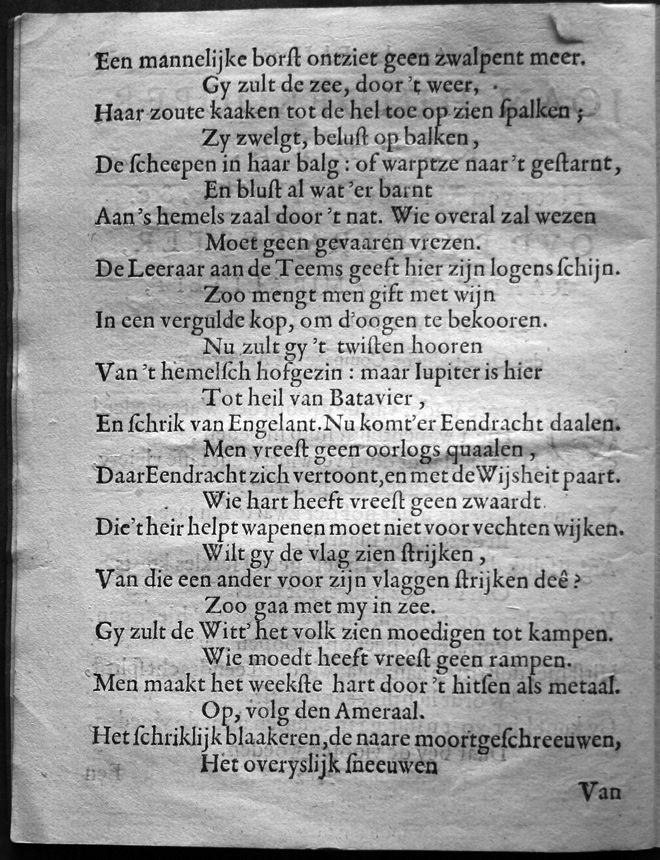 Een mannelijke borſt ontziet geen zwalpent meer.
Gy zult de zee, door 't weer,
Haar zoute kaaken tot de hel toe op zien ſpalken;
Zy zwelgt, beluſt op balken,
De ſcheepen in haar balg: of warptze naar 't geſtarnt,
En bluſt al wat 'er barnt
Aan 's hemels zaal door 't nat. Wie overal zal wezen
Moet geen gevaaren vrezen.
De Leeraar aan de Teems geeft hier zijn logens ſchijn.
Zoo mengt men gift met wijn
In een vergulde kop, om d'oogen te bekooren.
Nu zult gy 't twiſten hooren
Van 't hemelſch hofgezin: maar Iupiter is hier
Tot heil van Batavier,
En ſchrik van Engelant. Nu komt'er Eendracht daalen.
Men vreeſt geen oorlogs quaalen,
Daar Eendracht zich vertoont, en met de Wijsheit paart.
Wie hart heeft vreeſt geen zwaardt.
Die 't heir helpt wapenen moet niet voor vechten wijken.
Wilt gy de vlag zien ſtrijken,
Van die een ander voor zijn vlaggen ſtrijken deê?
Zoo gaa met my in zee.
Gy zult de Witt' het volk zien moedigen tot kampen.
Wie moedt heeft vreeſt geen rampen.
Men maakt het weekſte hart door 't hitſen als metaal.
Op, volg den Ameraal.
Het ſchriklijk blaakeren, de naare moortgeſchreeuwen,
Het overyslijk ſneeuwen
Van